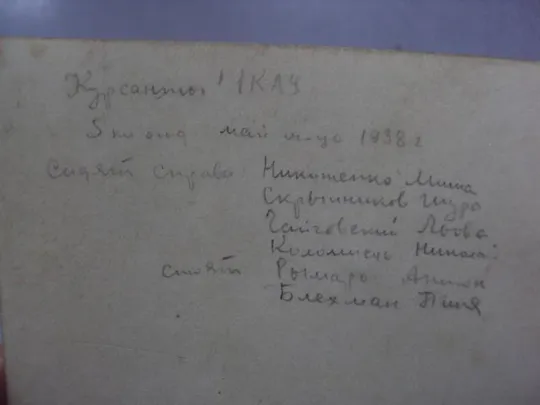 Курсанты 1 КАУ
5 май м-цо 1938 г
сидят справа Никоненко Миша
Скрынников Шура
Гайговский Лёва
Коломиец Николай
стоят Рымарь
Блехман Пиня